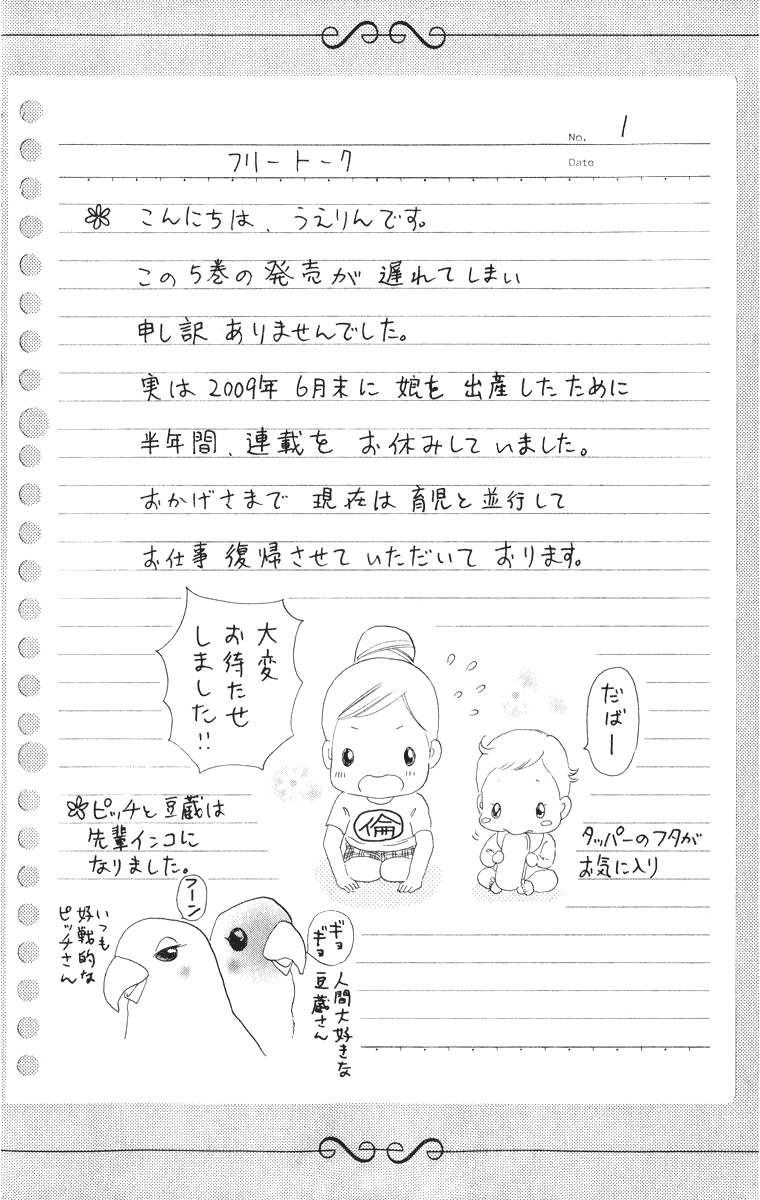 No. 1
フリートーク
Date
こんにちは、うえりんです。
この5巻の発売が遅れてしまい
申し訳ありませんでした。
実は2009年6月末に娘を出産したために
半年間、連載をお休みしていました。
おかげさまで現在は育児と並行して
お仕事復帰させていただいております。
大変
お待たせ
しました!!
だばー
倫
タッパーのフタが
お気に入り
ピッチと豆蔵は
先輩インコに
なりました。
フーン
いつも
好戦的な
ピッチさん
ギョ
ギョ
人間大好きな
豆蔵さん